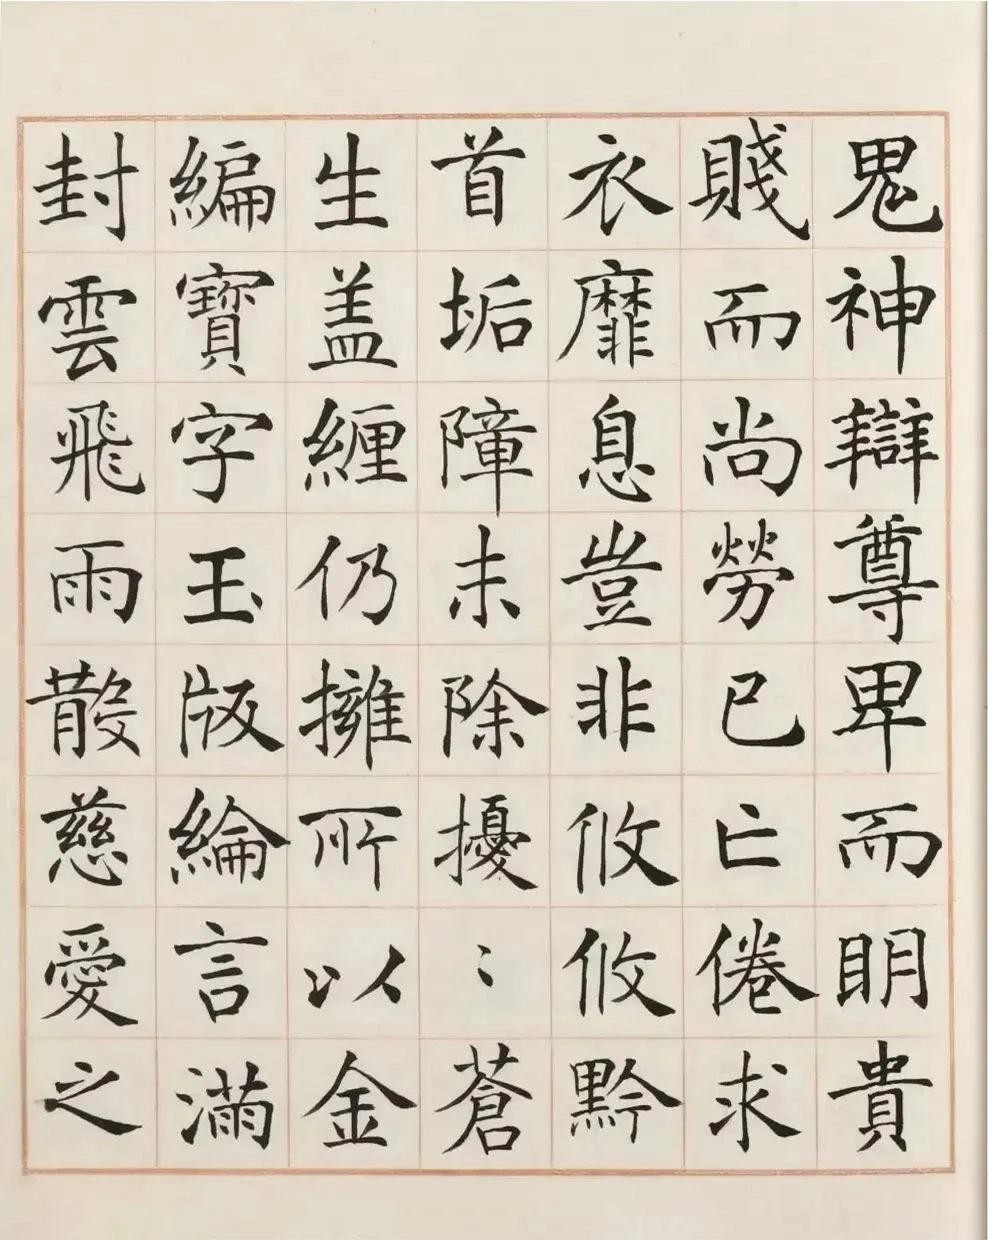 鬼神辯尊卑而明貴
賤而尚勞已亡倦求
衣靡息豈非攸攸黔
首垢障未除擾〻蒼
生盖纏仍擁所以金
編寶字玉版綸言滿
封雲飛雨散慈愛之